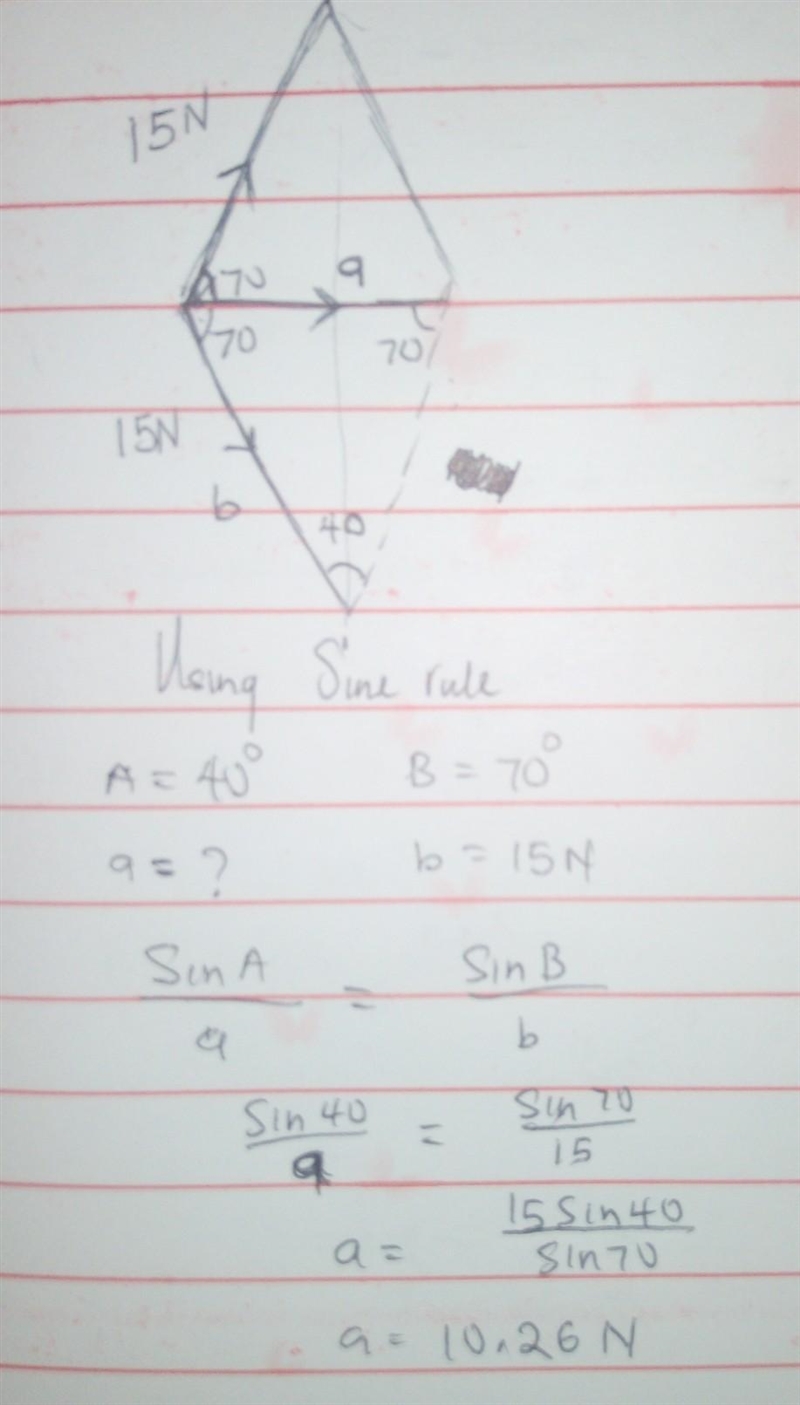 15N
70 a
70 70
15N
b
40
Using Sine rule
A = 40° B = 70°
a = ? b = 15N
Sin A = Sin B
a b
Sin 40 = Sin 70
a 15
a = 15 Sin 40
Sin 70
a = 10.26 N